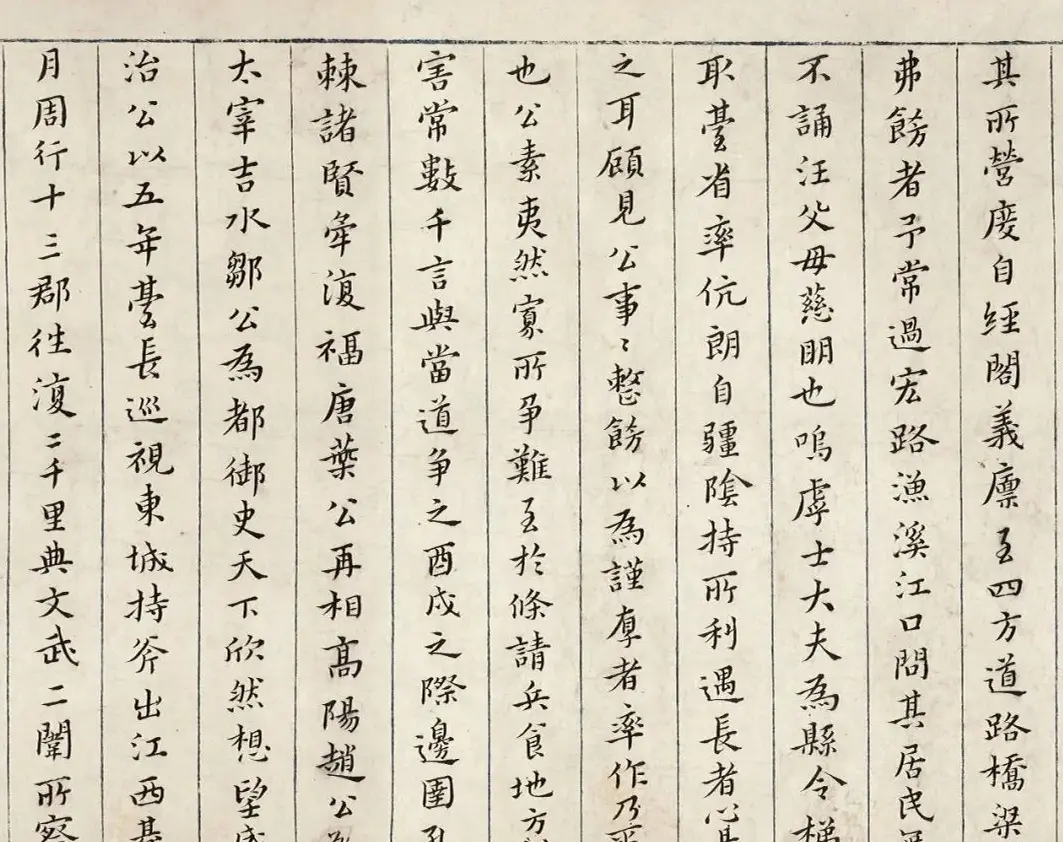 其所營度自經閣義廪至四方道路橋梁
弗餝者予常過宏路漁溪江口問其居民無
不誦汪父母慈明也嗚虖士大夫為縣令梯
取臺省率伉朗自疆陰持所利遇長者心
之耳顧見公事〻整餝以為謹厚者率作乃
也公素夷然寡所爭難至於條請兵食地方
害常數千言與當道爭之酉戌之際邊圉孔
棘諸賢彙復福唐葉公再相高陽趙公
太宰吉水鄒公為都御史天下欣然想望
治公以五年臺長巡視東城持斧出江西甚
月周行十三郡往復二千里典文武二闈所察